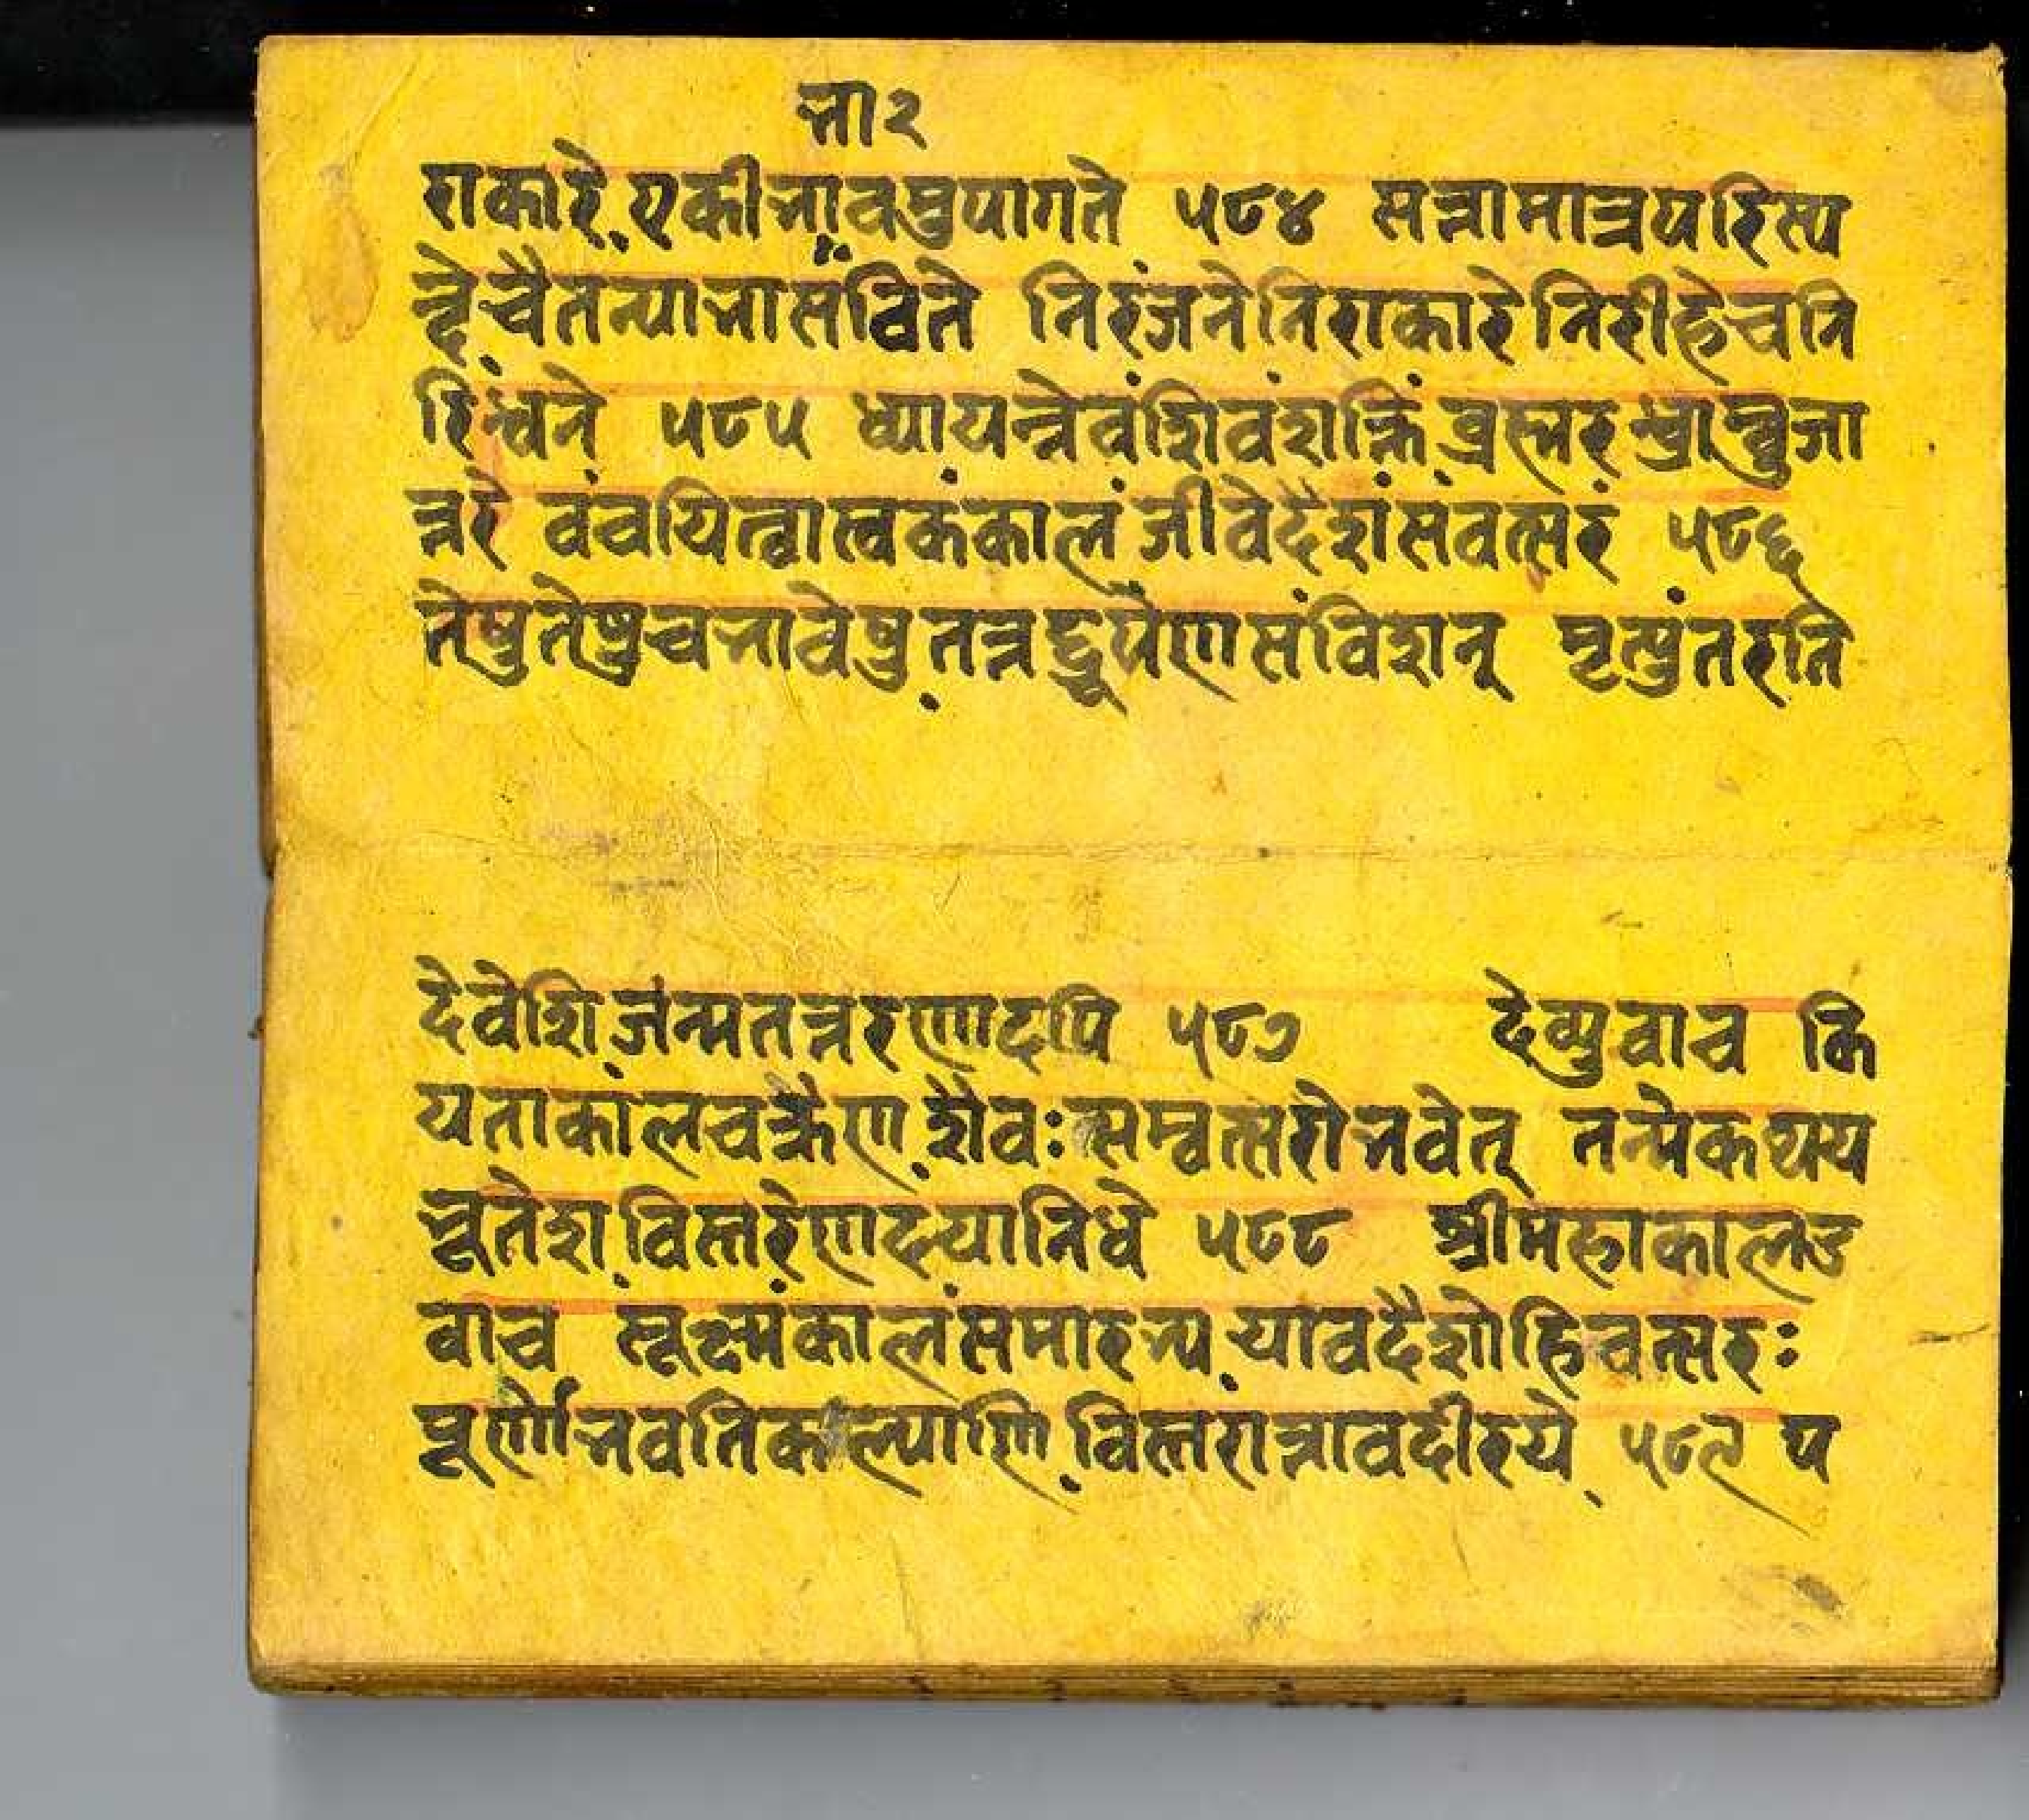 भा२
राकारे एकीभावमुपागते ५८४ सत्तामात्रपरिस्प
न्दे चैतन्याभासंविते निरंजनेनिराकारेनिरीहेचनि
रिन्धने ५८५ ध्यायन्नेवंशिवंशक्तिं ब्रह्मरन्ध्राम्बुजा
न्तरे वंचयित्वात्वकंकालं जीवेदैशंसंवत्सरं ५८६
तेषुतेषुचभावेषु तत्तद्रूपेणसंविशन् मृत्युंतरति
देवेशि जन्मतन्मरणादपि ५८७ देव्युवाच कि
यताकालचक्रेण शैवः सम्वत्सरोभवेत् तन्मेकथय
भूतेश विस्तरेणदयानिधे ५८८ श्रीमहाकालउ
वाच सूक्ष्मंकालंसमारभ्य यावदैशोहिवत्सरः
पूर्णोभवतिकल्याणि विस्तरात्तावदीरये ५८९ प